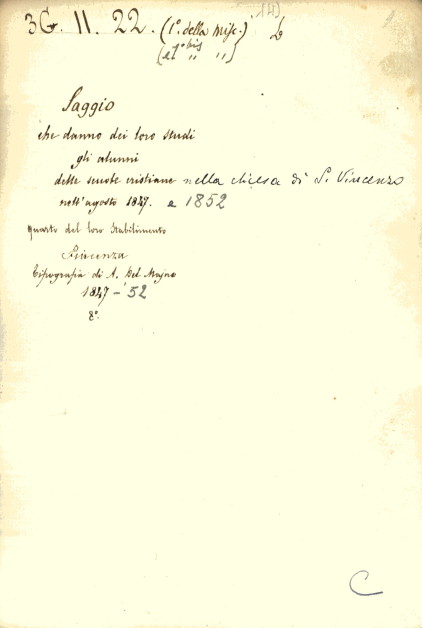 3G. II. 22. (1º. della misc.) b
(et 1º bis " ")
Saggio
che danno dei loro studi
gli alunni
delle scuole cristiane nella chiesa di S. Vincenzo
nell'agosto 1847. e 1852
quarto del loro stabilimento
Piacenza
Tipografia di A. Del Majno
1847 - '52
8º.
C